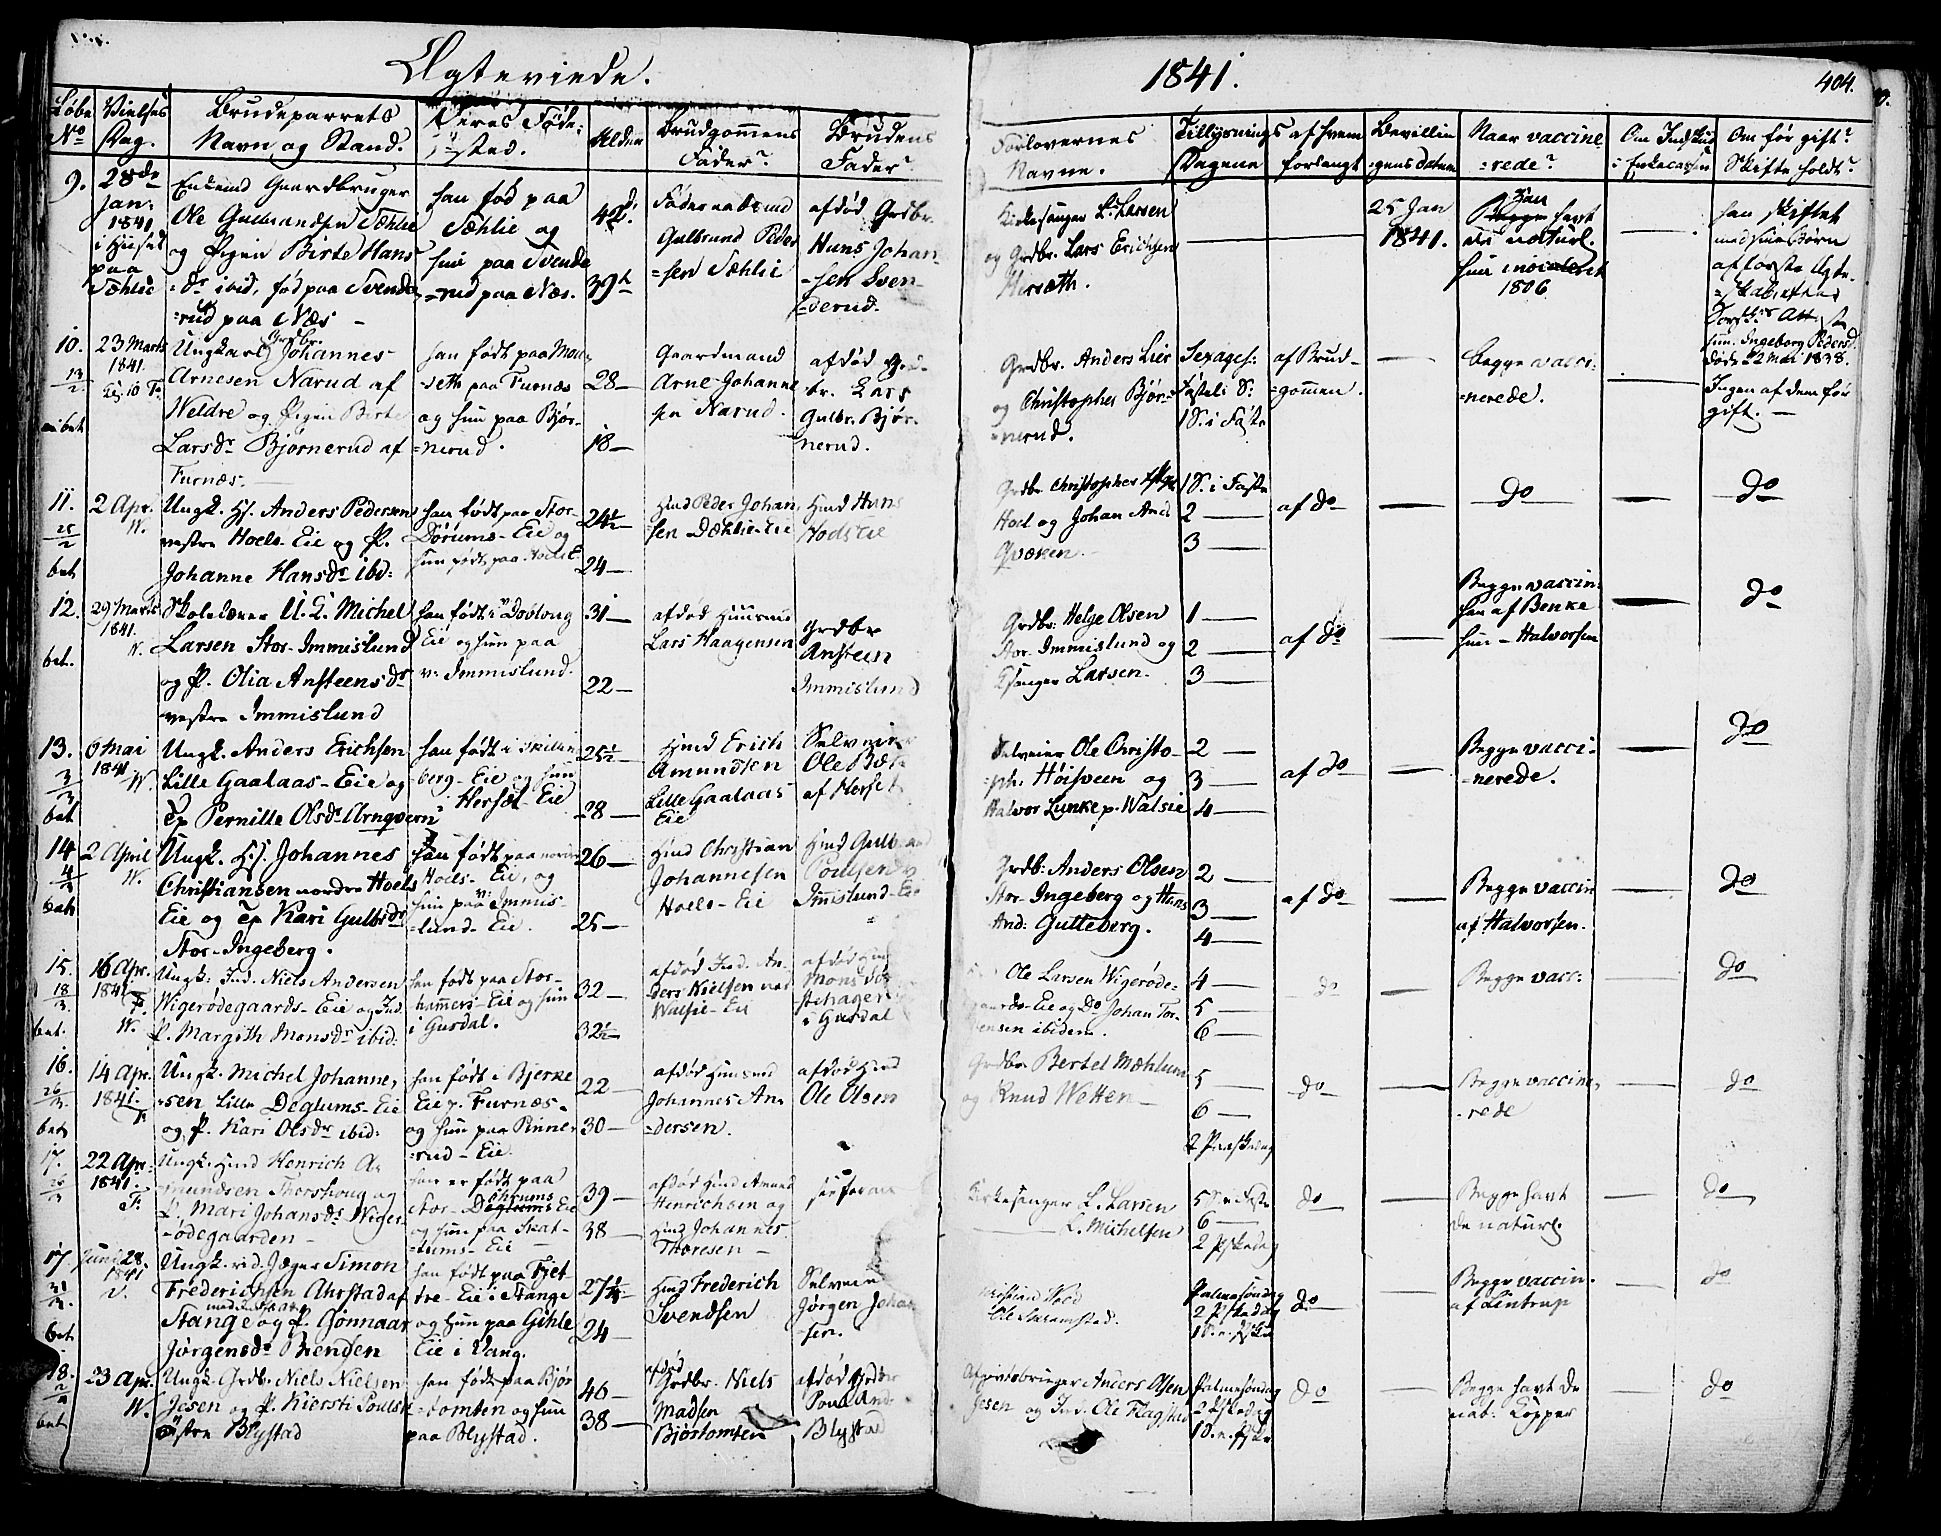 Ægteviede.
1841.
404.
Løbe No
Vielses Dag.
Brudeparrets Navn og Stand.
Deres Fødested.
Alder
Brudgommens Fader?
Brudens Fader?
Forlovernes Navne.
Tillysnings Dagene
af hvem forlangt
Bevillingens Datum
Naar vaccinerede?
Om Indskud i Enkecassen
Om før gift? Skifte holdt?
9.
28de Jan: 1841 i Huset paa Sæhlie
Enkemd Gaardbruger
Ole Gulbrandsen Sæhlie
og Pigen Birte Hans
=dr ibid, fød paa Svende
=rud paa Næs –
han fød paa
Sæhlie og
hun paa Svende
=rud paa Næs.
39
Gulbrand Peder
=sen Sæhlie
afdød Grdbr.
Hans Johan
=sen Sven
=derud.
Kirkesanger L. Larsen
og Grdbr. Lars Erichsen
Hersæth.
25 Jan
1841.
Han
havt
de naturl.
hun inoculeret
1806
han skiftet
med sine Børn
af første Ægte
=skab efter
hun. Ingeborg Pedersd
døde 22 Mai 1838.
10.
23 Marts
1841.
Ungkarl Grdbr. Johannes
Arnesen Narud af
Veldre og Pigen Birte
Larsdr Bjørnerud af
Furnæs. –
paa Furnæs
og hun paa Bjør-
=nerud.
28 –
18 –
Gaardmand
Arne Johanne
sen Narud.
afdød Grd
br. Lars
Gulbr. Bjør-
nerud.
Grdbr. Anders Lier
og Christopher Bjør=
=nerud.
Sexages:
Fastel: S:
1 S. i Faste
af Brud-
=gommen.
Begge vacci-
=nerede.
Ingen af dem før
gift. –
11.
25/2
bet
2 Apr.
V.
Ungk. Hs. Anders Pedersen
vestre Hoels-Eie og P.
Johanne Hansdr ibid:
han født paa Stor-
Dørums-Eie og
hun født paa Hoels E
24½
24 –
Hmd Peder Johan
sen Dæhlie-Eie
Hmd Hans
Hoels Eie
Grdbr. Christopher
Hoel og Johan And
Qvæken. –
1 S. i Faste
2 –
3 –
af do
do
do
12.
bet.
29 Marts
1841.
V.
Skolelærer U. K. Michel
Larsen Stor-Immislund
og P. Olia Ansteensdr
vestre Immislund
han født i Dobloug
Eie og hun paa
v: Immislund.
31 –
22 –
afdød Huusmd
Lars Haagensen
Grdbr
Ansteen
Immislund
Grdbr: Helge Olsen
Stor-Immislund og
Ksanger Larsen.
1 –
2 –
3 –
af do
Begge vaccin:
han af Benke
hun – Halvorsen
do
13.
3/3
bet
6 Mai
1841
V.
Ungk. Anders Erichsen
Lille Gaalaas-Eie og
Tp Pernille Olsdr Arnqvern
han født i Skillin
berg-Eie og hun
i Hersæt-Eie
25½
28 –
Hmd Erich
Amundsen
Lille Gaalaas
Eie
Selveier
Ole
af Herset
Selveier Ole Christo-
=ph. Høisveen og
Halvor Lunke p. Valsie
2 –
3 –
4 –
af do
Begge vacci-
=nerede.
do
14
4/3
bet
2 April
V.
Ungk. Hs. Johannes
Christiansen nordre Hoels
Eie og Tp Kari Gulbrdr
Stor-Ingeberg.
han født paa nordre
Hoels-Eie, og
hun paa v: Immis-
lund-Eie.
26 –
25 –
Hmd Christian
Johannesen
Hoels-Eie
Hmd Gulbrand
Poulsen
Imislund-Eie
Grdb: Anders Olsen
Stor-Ingeberg og Hans
And: Gutteberg.
2 –
3 –
4 –
af do
Begge vaccin
af Halvorsen.
do
15.
18/3
bet.
16 Apr.
1841
F.
V.
Ungk: Ind. Niels Andersen
Wigerødegaards-Eie og Ind.
P. Margith Monsdr ibid:
han født paa Stor-
hammers-Eie og hun
i Gusdal.
32 –
32½
afdød Ind. An-
ders Nielsen
Valsie-Eie
afdød Hmd
Mons
i Gusdal
Ole Larsen Wigerøde-
gaards-Eie og Do Johan Tor-
gensen ibidem.
4 –
5 –
6 –
do
Begge vacc:
do
16.
26/3
bet
14 Apr.
1841.
F
Ungk. Michel Johanne,
=sen Lille Deglums-Eie
og P. Kari Olsdr ibid:
han født i Bjerke
Eie p. Furnæs-
og hun paa Pinne
=rud-Eie.
22 –
30 –
afdød Huusmd
Johannes An-
=dersen.
afdød Hmd
Ole Olsen
Grdbr Bertel Mæhlum
og Knud Wetten –
5 –
6 –
2 Paaskedag
do
Begge vaccine-
=rede
do
17.
22 Apr.
1841.
F.
Ungk. Hmd Henrich A-
mundsen Thorshoug og
P. Mari Johansdr Wiger-
=ødegaarden –
han er født paa
Stor-Deglums Eie
og hun paa Skat-
=tums-Eie
39 –
38 –
afdød Hmd Amund
Henrichsen og
Hmd Johannes
Thoresen –
Kirkesanger L. Larsen
– L. Michelsen
5 S. i Faste
6 –
2 Pskedag
do
Begge havt
de naturl.
do
17.
31/3
bet
Juni 28.
1841
V.
Ungk. rid. Jæger Simon
Frederichsen Ahrstad af
Stange og P. Gønnaar
Jørgensdr Brenden
han født paa Fjet
tre-Eie i Stange
og hun paa Gihle
Eie i Vang.
27¼
24 –
Hmd Frederich
Svendsen
Selveier
Jørgen Johan
=sen.
Palmesøndag
2 Pskedag
1 S. e. Pske
do
Begge vaccin.
af Lintrup
do
18.
2/4
bet
23 Apr.
V.
Ungk. Grdb. Niels Nielsen
Jesen og P. Kiersti Poulsd
østre Blystad
han født paa Bjør
=stomten og hun
paa Blystad.
46 –
38 –
afdød
Grdbr. Niels
Madsen
Bjørstomten
afdød Grdbr
Poul And
Blystad
Anders Olsen
Jesen og Ind. Ole Flagstad
Palmesøndag
2 Pskedag
1 S. e. Pske
do
Begge havt de
nat: Kopper
do